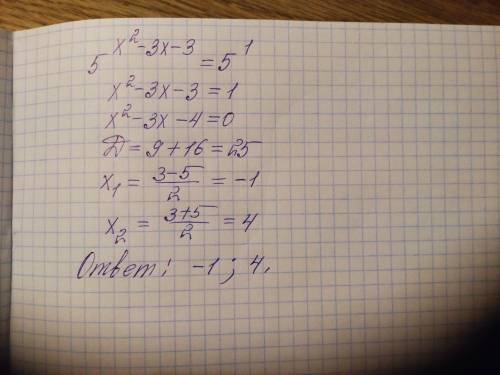 5^{x^2-3x-3} = 5^1
x^2-3x-3=1
x^2-3x-4=0
Д=9+16=25
x_1 = \frac{3-5}{2} = -1
x_2 = \frac{3+5}{2} = 4
Ответ: -1; 4.